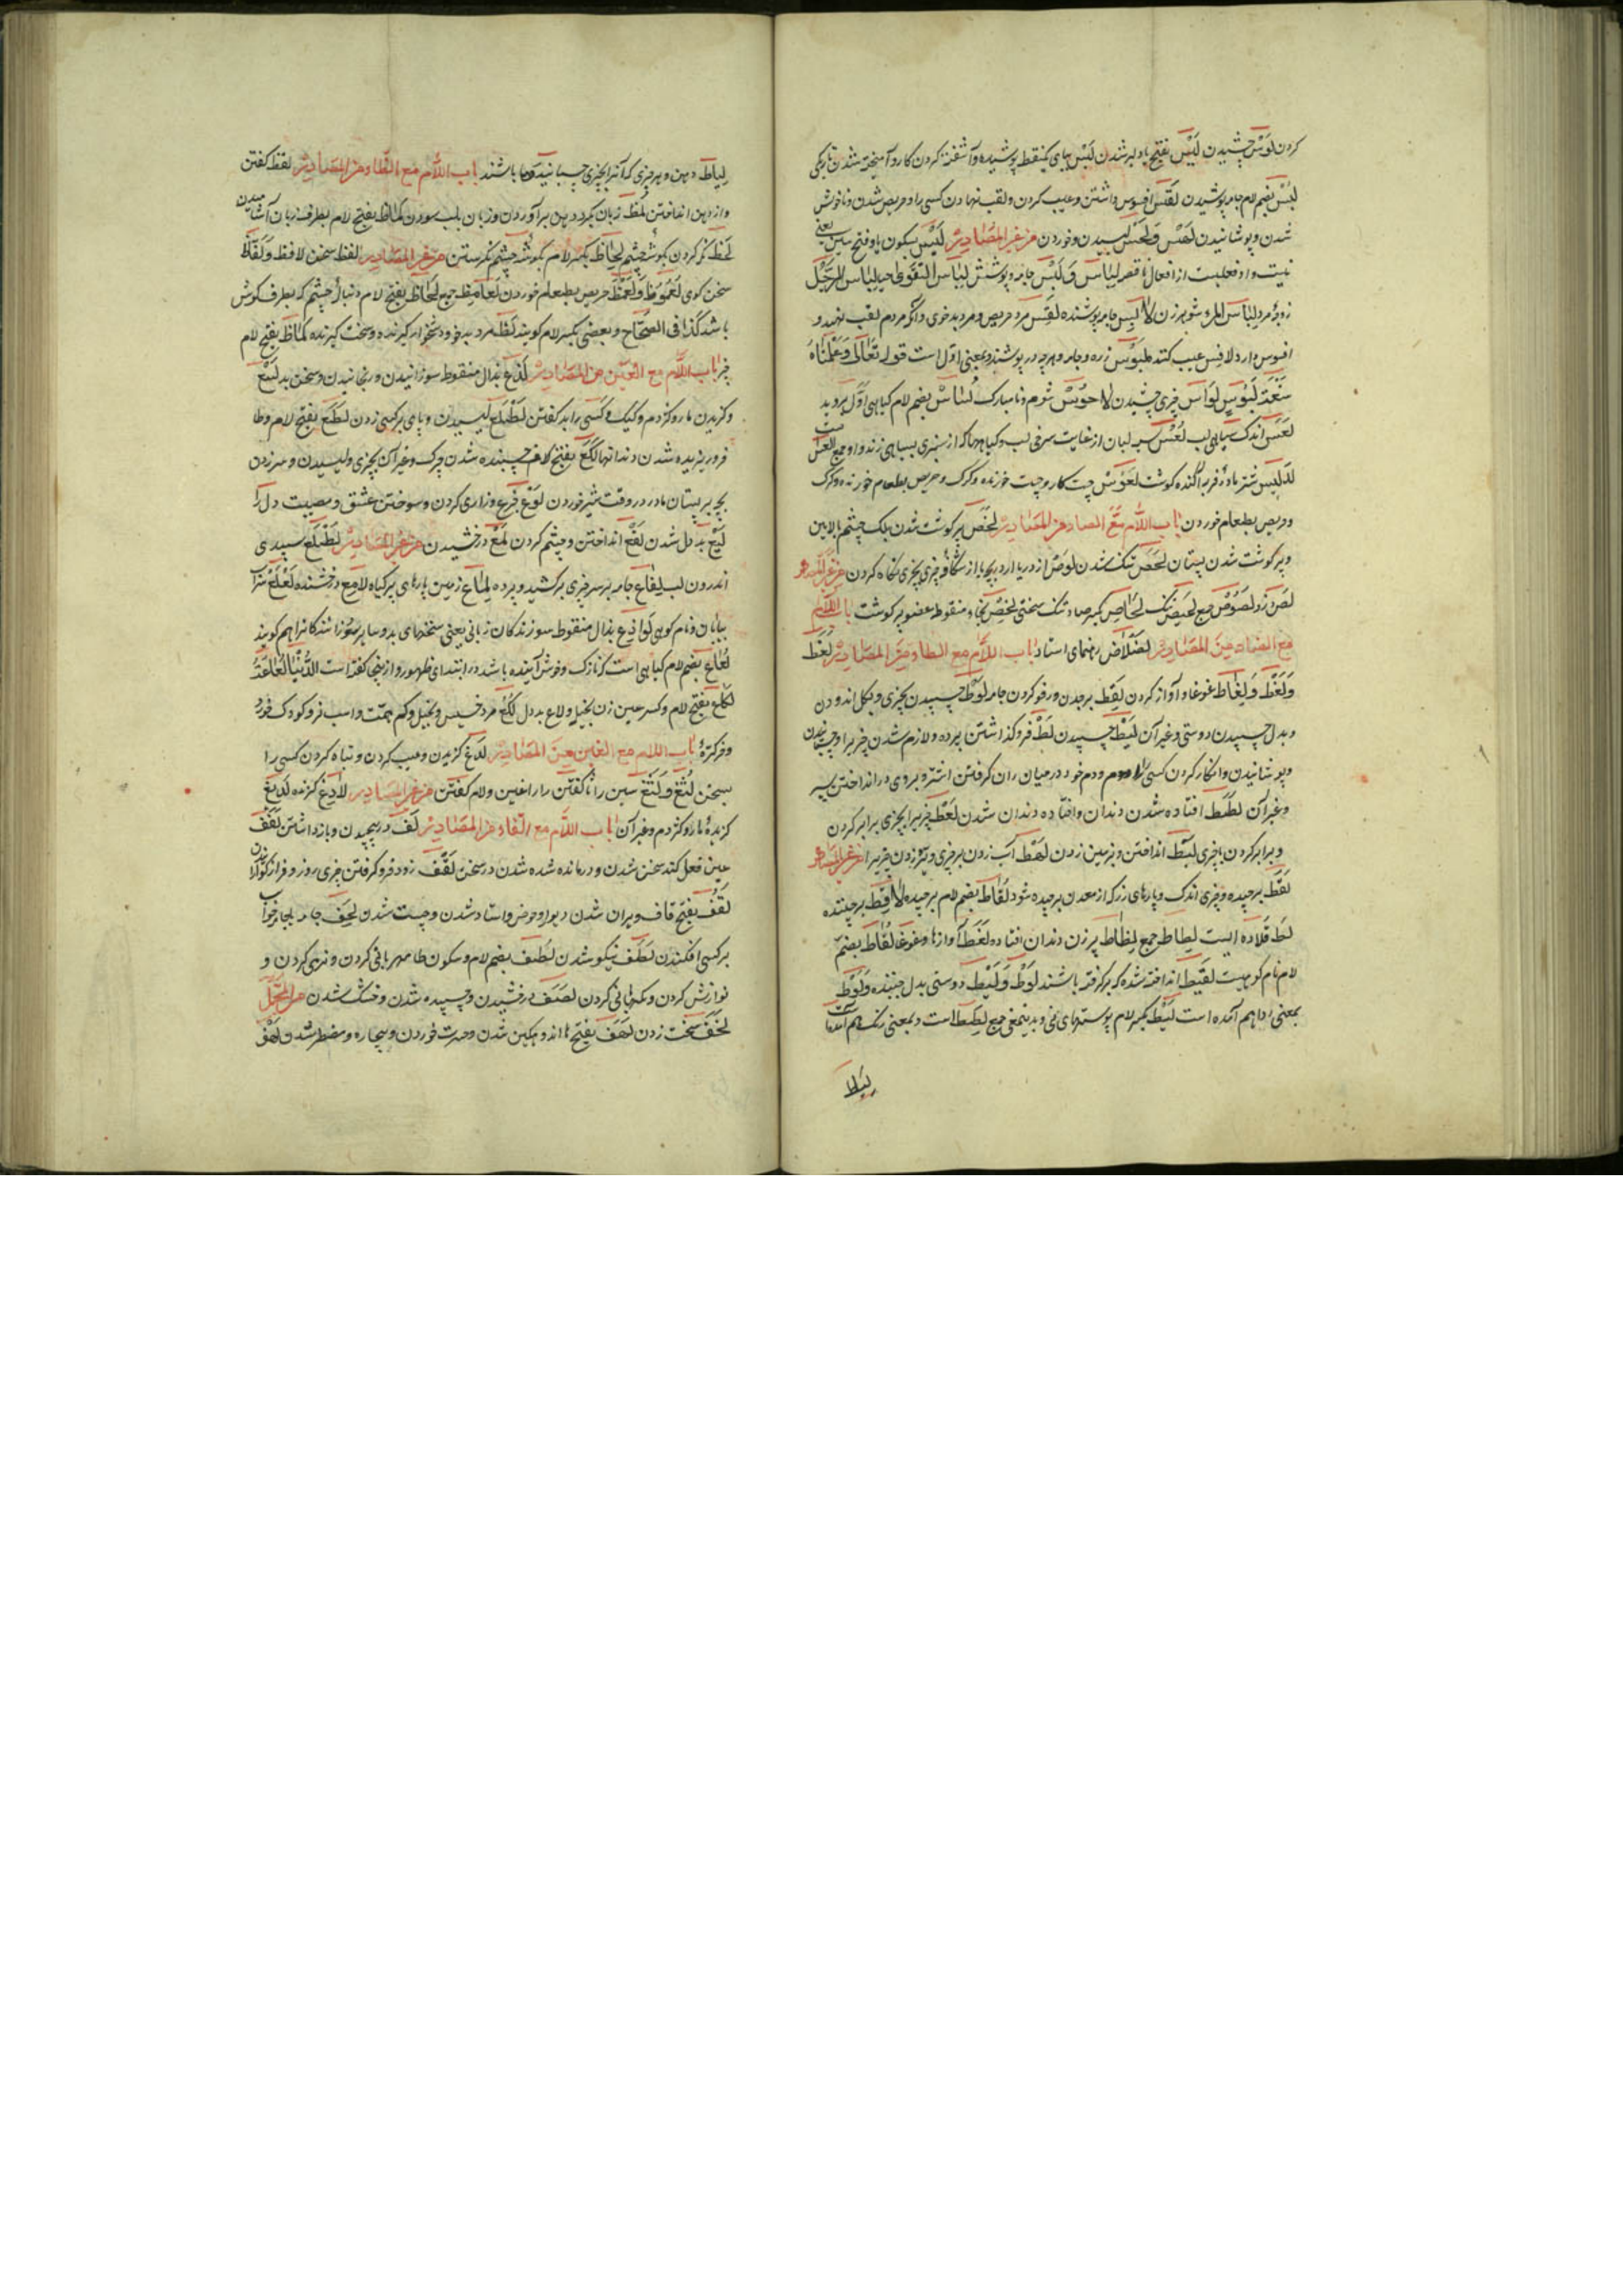 کردن لَوْس چشیدن لَیَس بفتح یا دلیر شدن لَبْس ببای یکنقطه پوشیده و آشفته کردن کار و آمیخته شدن تاریکی
لُبْس بضم لام جامه پوشیدن لَقْس افسوس داشتن و عیب کردن و لقب نهادن کسی را و حریص شدن و ناخوش
شدن و پوشانیدن لَهْس وَلَحْس لیسیدن و خوردن من غیر المصادر لَیْسَ بسکون یا و فتح سین یعنی
نیست و او فعلیست از افعال ناقصه لِبَاس وَ لَبْس جامه و پوشش لِبَاس التَّقْوَی حیا لِبَاس الرَّجُل
زوجهٔ مرد لِبَاس المرء شوهر زن لابِس جامه پوشنده لَقِس مرد حریص و مرد بدخوی و آنکه مردم لقب نهد و
افسوس دارد لاقِس عیب کننده لَبُوْس زره و جامه و هرچه در پوشند و بمعنی اول است قوله تَعَالَی وَعَلَّمْنَاهُ
صَنْعَةَ لَبُوسٍ لَوَاس چیزی چشیدن لاحُوْس شوم و نامبارک لُسَاس بضم لام گیاهی اول بروید
لَعَس اندک سیاهی لب لُعْس سیه لبان از غایت سرخی لب و گیاهها که از سبزی بسیاهی زند و او جمع اَلْعَسْ است
لَدِیْس شتر مادهٔ فربه آکنده گوشت لَعْوَس چست کار و چست خورنده و گرگ و حریص بطعام خورنده و گرگ
و حریص بطعام خوردن باب اللام مَعَ الصاد من المصادر لَخَص پر گوشت شدن پلک چشم بالایین
و پر گوشت شدن پستان لَحَص تنک شدن لَوْص از در یا از دریچه یا از شکاف چیزی بچیزی نگاه کردن من غیر المصادر
لِصّ دزد لُصُوْص جمع لَحَاصِ بکسر صاد تنگ سختی لَخِص بخاء منقوطه عضو پر گوشت باب اللّام
مع الضاد من المصادر لَضْلَاض رهنمای استاد باب اللّام مع الطاء من المصادر لَغَط
وَلَغْط وَلِغَاط غوغا و آواز کردن لَقْط برچدن و رفو کردن جامه لَوْط چسپیدن بچیزی و بگل اندودن
و بدل چسپیدن دوستی و غیر آن لَیْط چسپیدن لَطّ فرو گذاشتن پرده و لازم شدن چیزیرا و چسپانیدن
و پوشانیدن و انکار کردن کسی را و دم خود در میان ران گرفتن اشتر و بروی در انداختن سپر
و غیر آن لَطَط افتاده شدن دندان و افتاده دندان شدن لَعْط چیزیرا بچیزی برابر کردن
و برابر کردن با چیزی لَبْط انداختن و بزمین زدن لَهْط آب زدن بر چیزی و تیر زدن چیزیرا من غیر المصادر
لَقَط برچیده و چیزی اندک و پارهای زر که از معدن برچیده شود لُقَاط بضم لام برچیده لاقِط برچیننده
لَطّ قلاده ایست لِطاط جمع لِطْلِط پیر زن دندان افتاده لَغَط آوازها و غوغا لُقَّاط بضم
لام نام کوهیست لَقِیْط انداخته شده که برگرفته باشند لَوْط وَ لَیْط دوستی بدل چسپنده وَلَوْط
بمعنی ردا هم آمده است لَیْط بکسر لام پوستهای نی و بدینمعنی جمع لِیْطَة است و بمعنی رنگ هم آمده
لیاط
لِیاط دین و هر چیزی که آنرا بچیزی چسپانیده باشند باب اللّام مع الظاء من المصادر لفظ گفتن
و از دهن انداختن لَمْظ زبان گرد دهن برآوردن و زبان بلب سودن لَمَاظ بفتح لام بطرف زبان آشامیدن
لَحْظ نگر کردن بگوشهٔ چشم لِحَاظ بکسر لام بگوشهٔ چشم نگرستن من غیر المصادر لفظ سخن لافظ و لَفّاظ
سخن گوی لَعْمُوظ وَلَعْمَظ حریص بطعام خوردن لَعَامِظ جمع لَحَاظ بفتح لام دنبال چشم که بطرف گوش
باشد کَذَا فی الصِّحَاح و بعضی بکسر لام گویند لَظّ مرد بدخو و دشخوار گیرنده و سخت گیرنده لَمَاظ بفتح لام
چیز باب اللّام مع العین من المصادر لَذْع بذال منقوطه سوزانیدن و رنجانیدن و سخن بد لَسْع
و گزیدن مار و کژدم و کیک و کسی را بد گفتن لَطْع لیسیدن و پای بر کسی زدن لَطَع بفتح لام و طا
فرو ریزیده شدن دندانها لَکَع بفتح لام چسپنده شدن چرک و غیر آن بچیزی و لیسیدن و سر زدن
بچه بر پستان مادر در وقت شیر خوردن لَوْع جزع و زاری کردن و سوختن عشق و مصیبت دل را
لَیْع بد دل شدن لَقْع انداختن و چشم کردن لَمْع درخشیدن من غیر المصادر لَطَع سپیدی
اندرون لب لِفَاع جامه بر سر چیزی برکشید و پرده لِمَاع زمین پارهای پر گیاه لامِع درخشنده لَعْلَع سراب
بیابان و نام کوهی لَوَاذِع بذال منقوطه سوزندگان زبانی یعنی سخنهای بد و سایر سوزانندگانرا هم گویند
لُعَاع بضم لام گیاهی است که نازک و خوش آینده باشد در ابتدای ظهور و از ینجا گفته است الدُّنْیَا لُعَاعَةٌ
لَکَاع بفتح لام و کسر عین زن بخیل و لاع بد دل لُکَع مرد خسیس و بخیل و کم همت و اسب نر و کودک خورد
و خر کره باب اللام مع الغین مِنَ المصادر لَدْغ گزیدن و عیب کردن و تباه کردن کسی را
بسخن لُثْغ وَ لَثَغ سین را ثا گفتن را را غین و لام گفتن من غیر المصادر لادِغ گزنده لَدِیْغ
گزیدهٔ مار و کژدم و غیر آن باب اللّام مع الفاء من المصادر لَفّ در پیچیدن و باز داشتن لَفَف
عین فعل کند سخن شدن و درمانده شده شدن در سخن لَقْف زود فرو گرفتن چیزی
لَقَف بفتح قاف ویران شدن دیوار و حوض و استاد شدن و چست شدن لَحْف جامه بجامه خواب
بر کسی افکندن لَطَف نیکو شدن لُطْف بضم لام و سکون طا مهربانی کردن و نرمی کردن و
نوازش کردن و نگهبانی کردن لَصَف درخشیدن و چسپیده شدن و خشک شدن
لَخْف سخت زدن لَهَف بفتح ها اندوهگین شدن و حسرت خوردن و بیچاره و مضطر شدن لَهْف